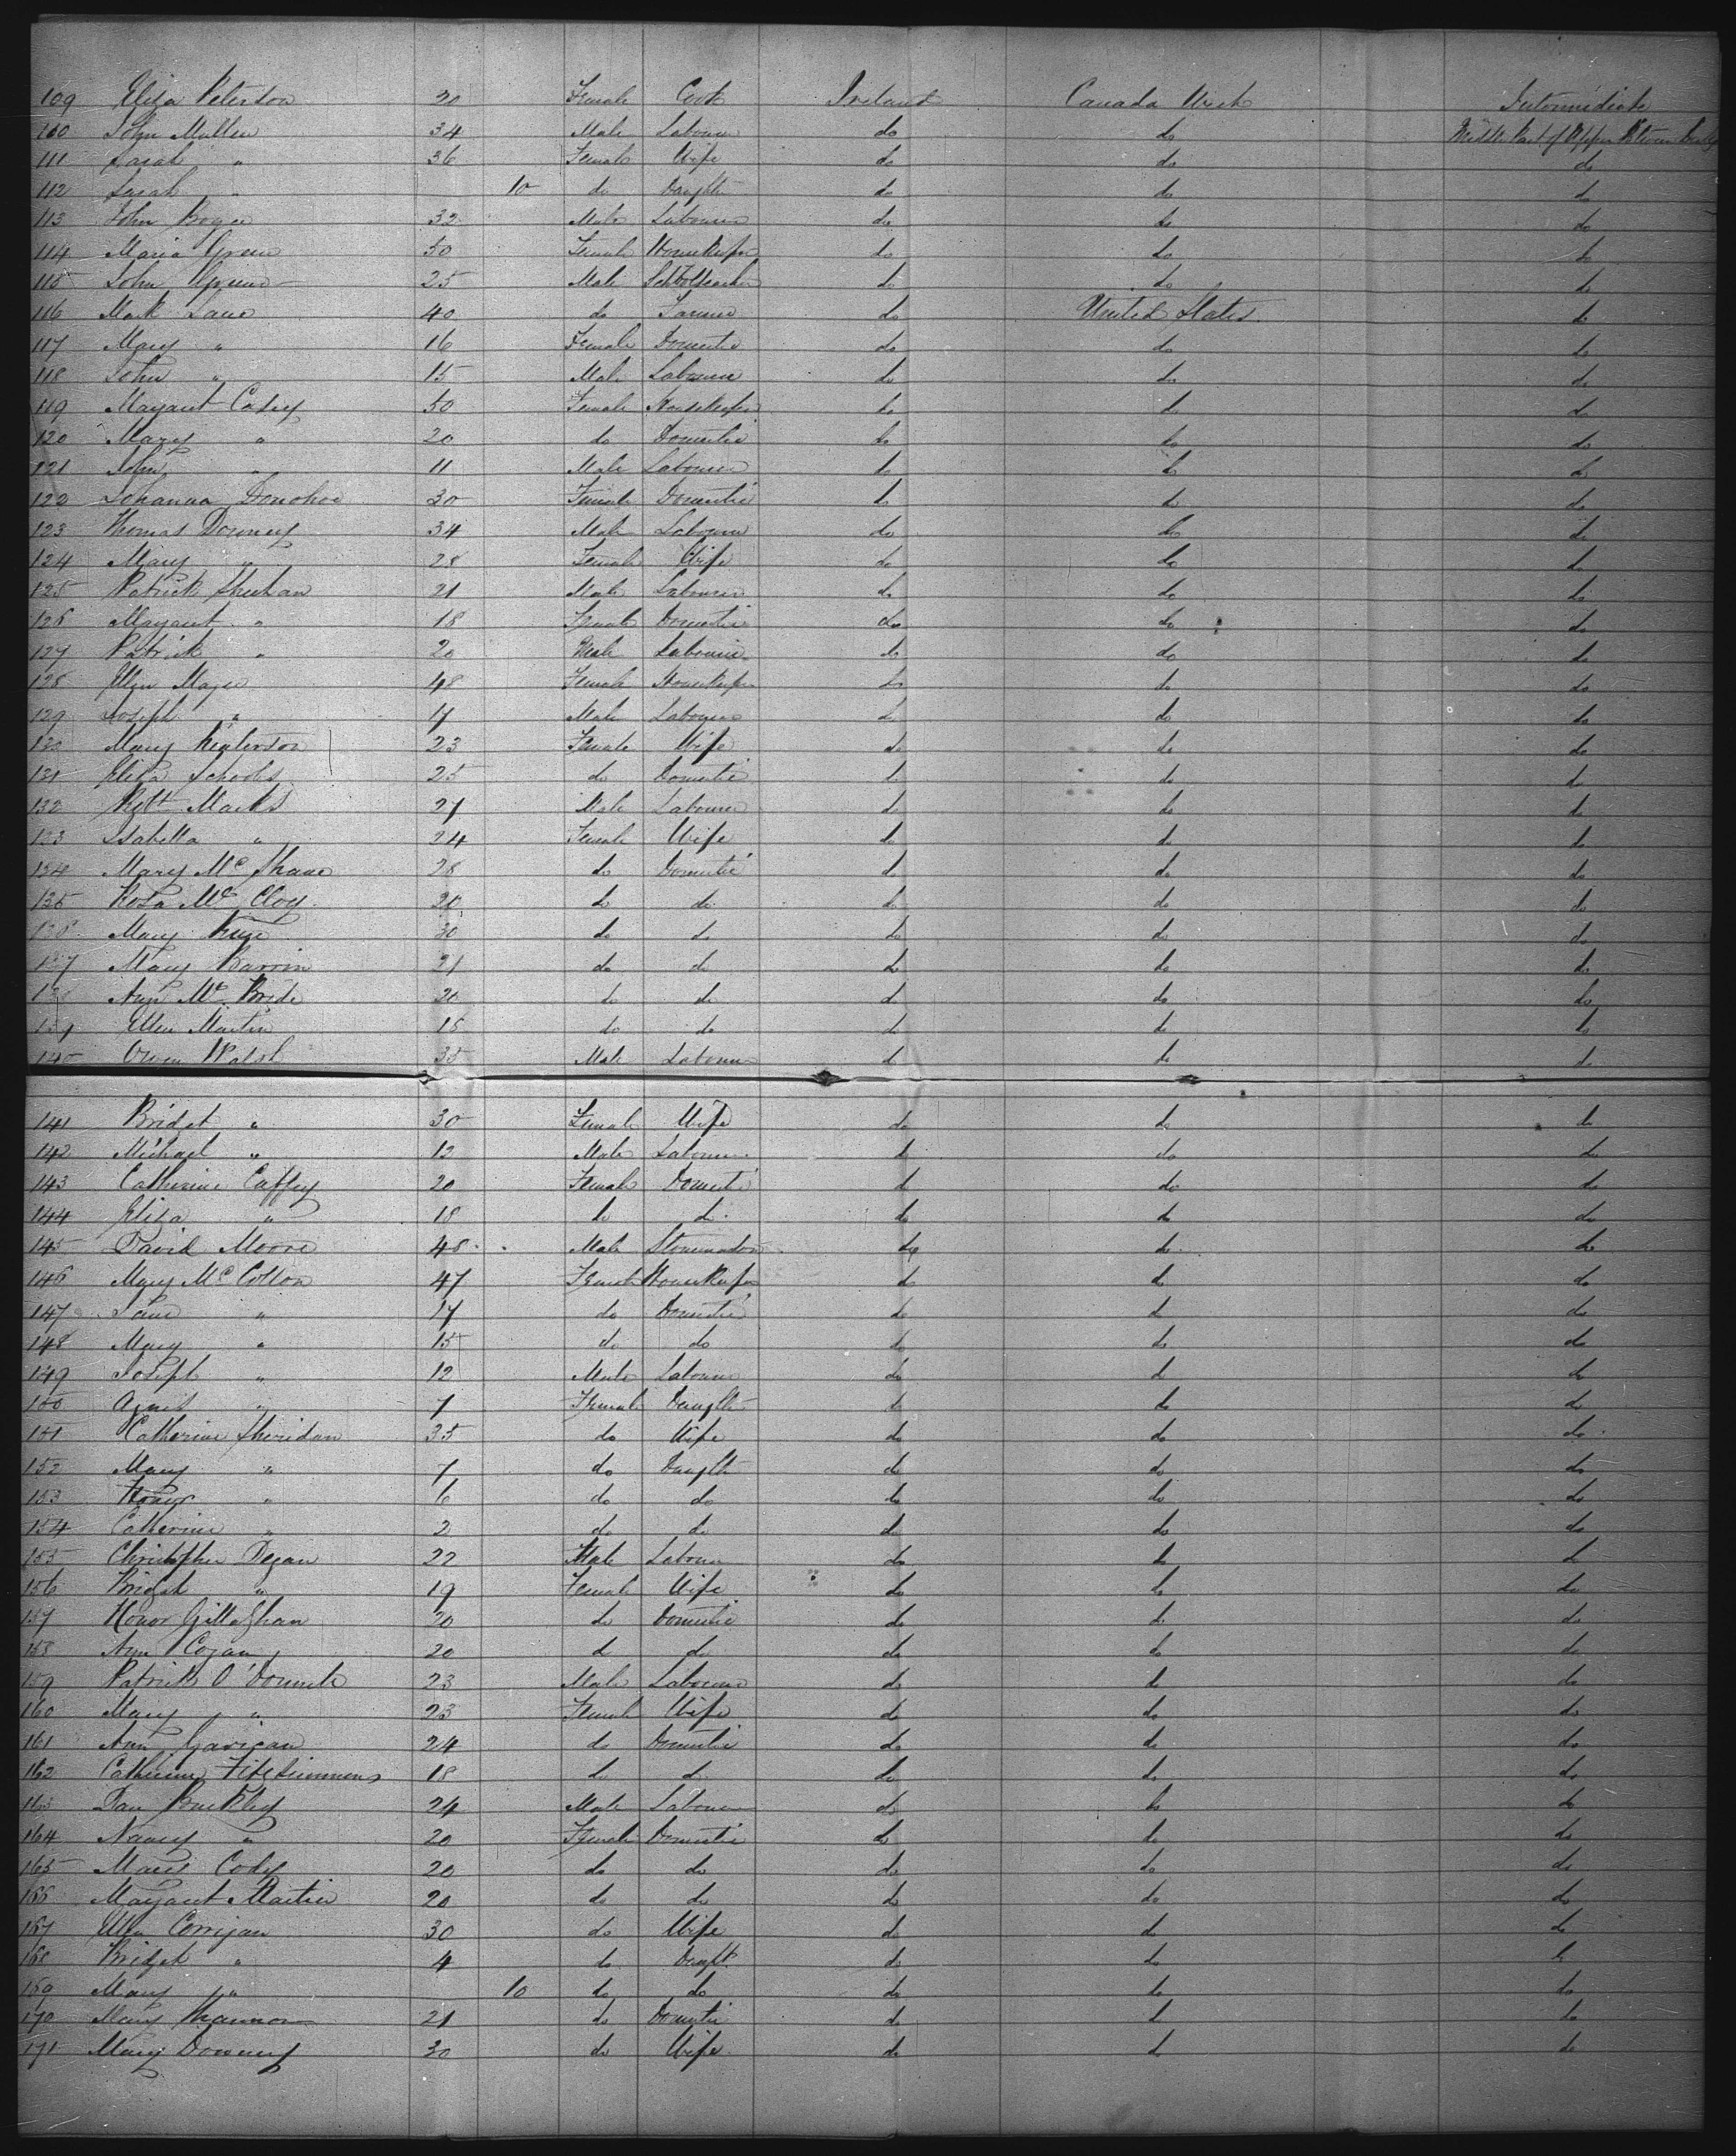 109 Eliza Peterson 20 Female Cook Ireland Canada West Intermediate
110 John Mullen 34 Male Labourer do do Middle Part of Upper Between Decks
111 Sarah " 36 Female Wife do do do
112 Sarah " 10 do Daughtr do do do
113 John Boyce 32 Male Labourer do do do
114 Maria Green 50 Female Housekeeper do do do
115 John Green 25 Male Schoolteacher do do do
116 Mark Lane 40 do Farmer do United States do
117 Mary " 16 Female Domestic do do do
118 John " 15 Male Labourer do do do
119 Margaret Casey 50 Female Housekeeper do do do
120 Mary " 20 do Domestic do do do
121 John " 11 Male Labourer do do do
122 Johanna Donohoe 30 Female Domestic do do do
123 Thomas Downey 34 Male Labourer do do do
124 Mary " 28 Female Wife do do do
125 Patrick Sheehan 21 Male Labourer do do do
126 Margaret " 18 Female Domestic do do do
127 Patrick " 20 Male Labourer do do do
128 Ellen Magee 48 Female Housekeeper do do do
129 Joseph " 17 Male Labourer do do do
130 Mary 23 Female Wife do do do
131 Eliza Schools 25 do Domestic do do do
132 Robt Marks 27 Male Labourer do do do
133 Isabella " 24 Female Wife do do do
134 Mary McShane 28 do Domestic do do do
135 Rosa McCloy 20 do do do do do
136 Mary 30 do do do do do
137 Mary Barrin 21 do do do do do
138 Ann McBride 20 do do do do do
139 Ellen Martin 18 do do do do do
140 Owen Walsh 35 Male Labourer do do do
141 Bridget " 30 Female Wife do do do
142 Michael " 12 Male Labourer do do do
143 Catherine Caffey 20 Female Domestic do do do
144 Eliza " 18 do do do do do
145 David Moore 48 Male Stonemason do do do
146 Mary McCollon 47 Female Housekeeper do do do
147 Jane " 17 do Domestic do do do
148 Mary " 15 do do do do do
149 Joseph " 12 Male Labourer do do do
150 Agnes " 7 Female Daughtr do do do
151 Catherine Sheridan 35 do Wife do do do
152 Mary " 7 do Daughtr do do do
153 Honor " 6 do do do do do
154 Catherine " 2 do do do do do
155 Christopher Degan 22 Male Labourer do do do
156 Bridget " 19 Female Wife do do do
157 Honor Gillaghan 20 do Domestic do do do
158 Ann Cogan 20 do do do do do
159 Patrick O'Donnell 23 Male Labourer do do do
160 Mary " 23 Female Wife do do do
161 Ann Gavigan 24 do Domestic do do do
162 Catherine Fitzsimmons 18 do do do do do
163 Dan Buckley 24 Male Labourer do do do
164 Nancy " 20 Female Domestic do do do
165 Mary Cody 20 do do do do do
166 Margaret Martin 20 do do do do do
167 Ellen Corrigan 30 do Wife do do do
168 Bridget " 4 do Daught do do do
169 Mary " 10 do do do do do
170 Mary Shannon 21 do Domestic do do do
171 Mary Downey 30 do Wife do do do